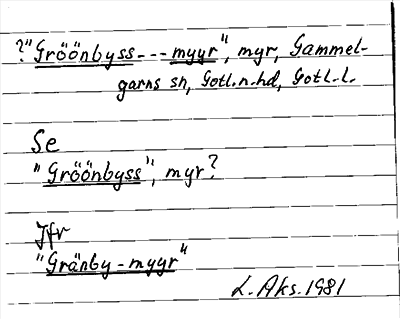 ?"Gröönbyss---myyr", myr, Gammel-
garns sn, Gotl.n.hd, Gotl.l.
Se
"Gröönbyss", myr?
Jfr
"Gränby-myyr"
L.Aks.1981